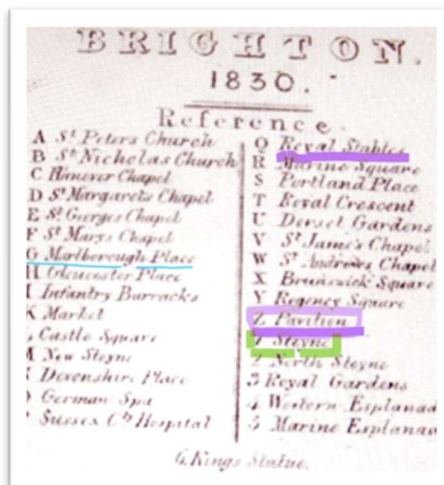 BRIGHTON.
1830.
Reference.
A St Peters Church
B St Nicholas Church
C Hanover Chapel
D St Margarets Chapel
E St Gorges Chapel
F St Marys Chapel
G Marlborough Place
H Gloucester Place
I Infantry Barracks
K Market
Castle Square
M New Steyne
Devonshire Place
German Spa
Sussex Cty Hospital
Q Royal Stables
R Marine Square
S Portland Place
T Royal Crescent
U Dorset Gardens
V St James Chapel
W St Andrews Chapel
X Brunswick Square
Y Regency Square
Z Pavilion
1 Steyne
2 North Steyne
3 Royal Gardens
4 Western Esplanad
5 Marine Esplanad
6. Kings Statue.